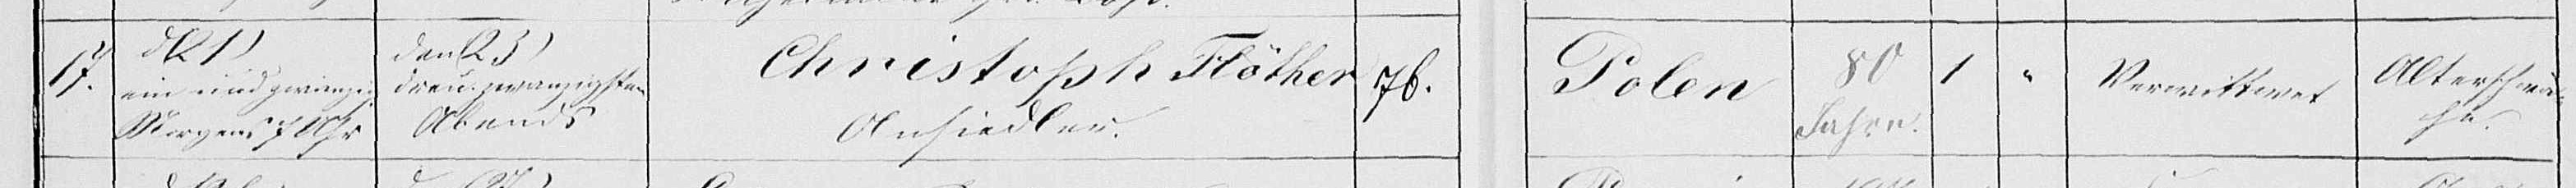 17.
d 21)
ein und zwanzig
Morgens 7 Uhr
den 23)
drei u. zwanzigsten
Abends
Christoph Flöther
Ansiedler.
76.
Polen
80
Jahre.
1
"
Verwittwet
Altersschwä-
che.